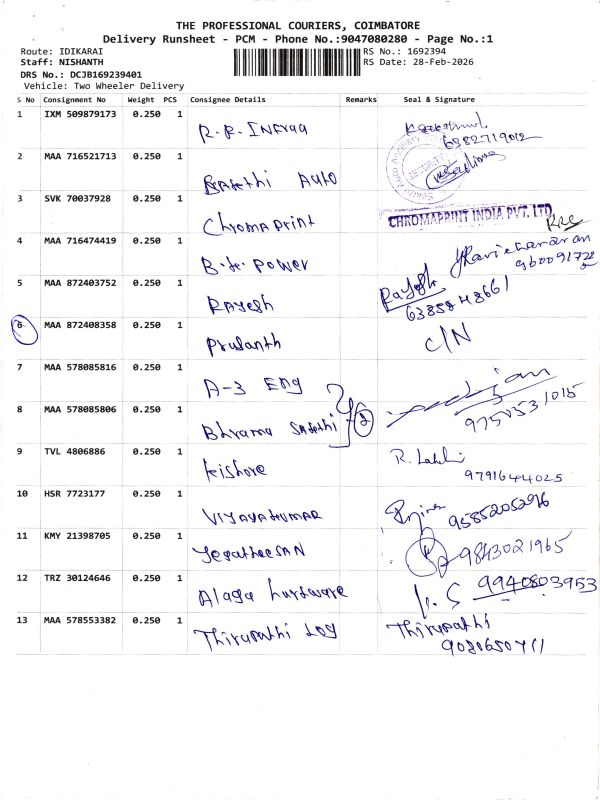 THE PROFESSIONAL COURIERS, COIMBATORE
Delivery Runsheet - PCM - Phone No.:9047080280 - Page No.:1
Route: IDIKARAI RS No.: 1692394
Staff: NISHANTH RS Date: 28-Feb-2026
DRS No.: DCJB169239401
Vehicle: Two Wheeler Delivery
S No Consignment No Weight PCS Consignee Details Remarks Seal & Signature
1 IXM 509879173 0.250 1 R.R. INFRAA 6382719012
2 MAA 716521713 0.250 1 Auto SECURITY
3 SVK 70037928 0.250 1 Chroma print CHROMAPRINT INDIA PVT. LTD
4 MAA 716474419 0.250 1 B.K. Power
5 MAA 872403752 0.250 1 RAYESH Rayesh 6385848661
6 MAA 872408358 0.250 1 Prasanth C/N
7 MAA 578085816 0.250 1 A-3 ENG
8 MAA 578085806 0.250 1 2
9 TVL 4806886 0.250 1 kishore R. 9791644025
10 HSR 7723177 0.250 1 VIJAYAKUMAR 9585205296
11 KMY 21398705 0.250 1 JegatheeSAN 9843021965
12 TRZ 30124646 0.250 1 Alaga hardware 9940803953
13 MAA 578553382 0.250 1 Thirupathi Log Thirupathi